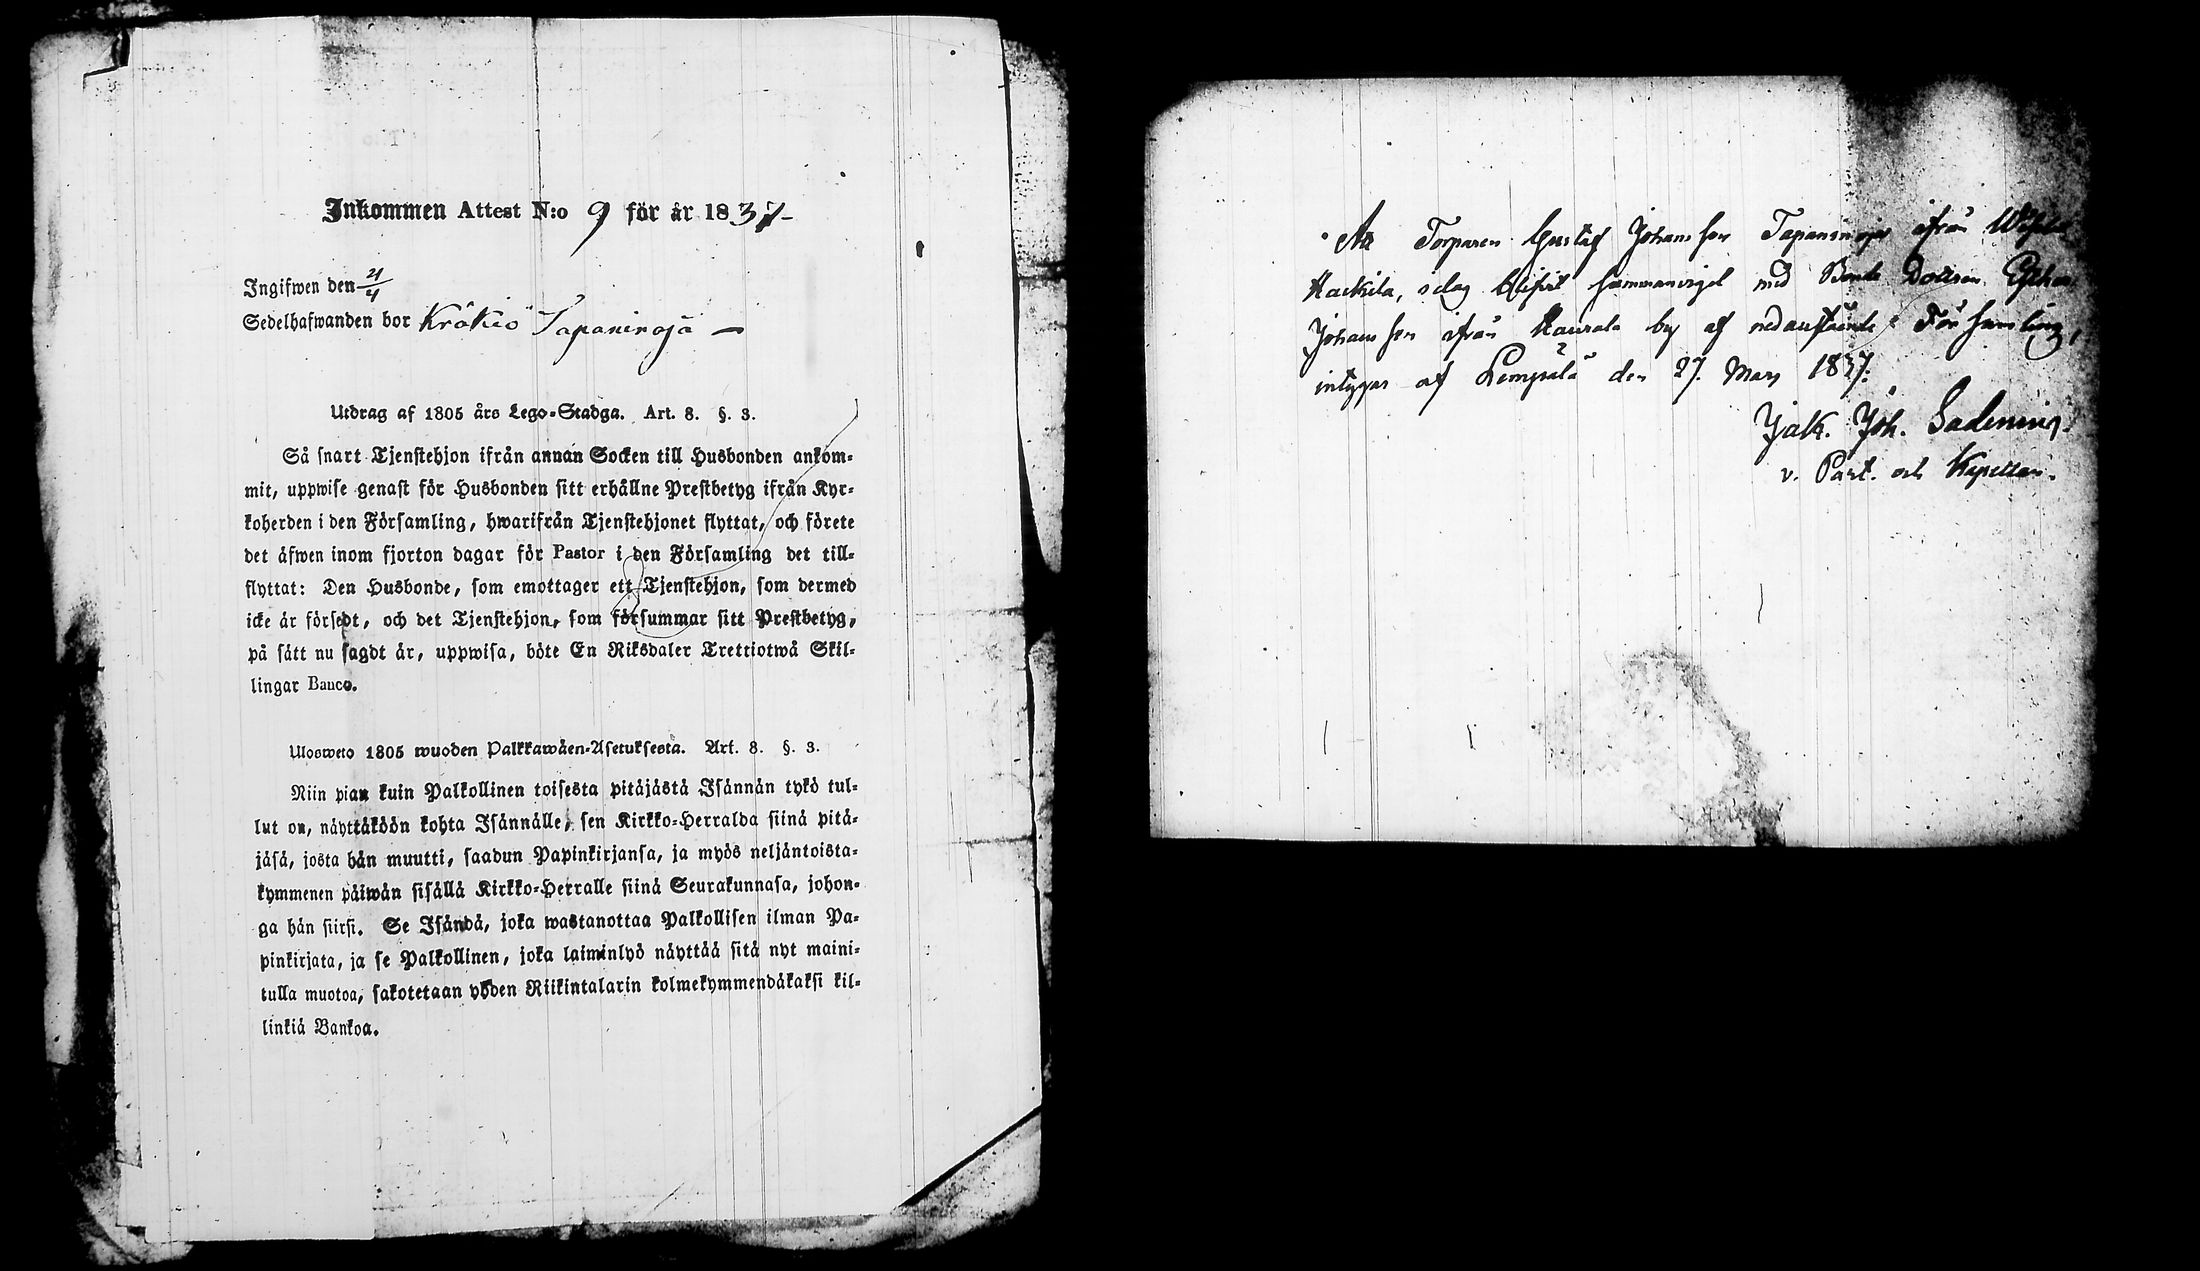 Inkommen Attest N:o 9 för år 1837
Ingifwen den 21/4
Sedelhafwanden bor Krökiö Tapaninoja
Utdrag af 1805 års Lego-Stadga. Art. 8. §. 3.
Så snart Tjenstehjon ifrån annan Socken till Husbonden ankom-
mit, uppwise genast för Husbonden sitt erhållne Prestbetyg ifrån Kyr-
koherden i den Församling, hwarifrån Tjenstehjonet flyttat, och förete
det äfwen inom fjorton dagar för Pastor i den Församling det till-
flyttat: Den Husbonde, som emottager ett Tjenstehjon, som dermed
icke är försedt, och det Tjenstehjon, som försummar sitt Prestbetyg,
på sätt nu sagdt är, uppwisa, böte En Riksdaler Trettiotwå Skil-
lingar Banco.
Ulosweto 1805 wuoden Palkkawäen-Asetuksesta. Art. 8. §. 3.
Niin pian kuin Palkollinen toisesta pitäjästä Isännän tykö tul-
lut on, näyttäköön kohta Isännälle, sen Kirkko-Herralda siinä pitä-
jäsä, josta hän muutti, saadun Papinkirjansa, ja myös neljäntoista-
kymmenen päiwän sisällä Kirkko-Herralle siinä Seurakunnasa, johon-
ga hän siirsi. Se Isändä, joka wastanottaa Palkollisen ilman Pa-
pinkirjata, ja se Palkollinen, joka laiminlyö näyttää sitä nyt maini-
tulla muotoa, sakotetaan yhden Riikintalarin kolmekymmendäkaksi kil-
linkiä Bankoa.
Att Torparen Gustaf Johansson Tapaninoja ifrån
idag blifvit sammanvigd med Bonde Dottren
Johansson ifrån Kaurala by af nedanstående Församling,
intygar af Lempälä den 27. Mars 1837.
Jak. Joh.
v. Past. och Kapellan.